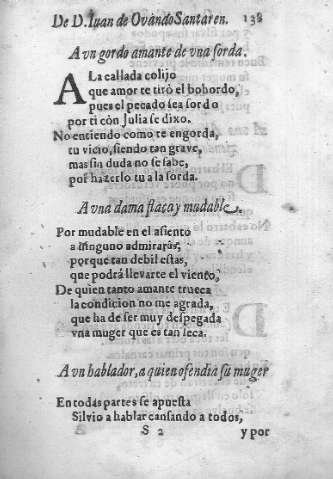 De D. Iuan de Ovando Santaren. 138
A vn gordo amante de vna sorda.
A La callada colijo
que amor te tirò el bohordo,
pues el pecado sea sordo
por ti còn Julia se dixo.
No entiendo como te engorda,
tu vicio, siendo tan grave,
mas sin duda no se sabe,
por hazerlo tu a la sorda.
A vna dama flaca y mudable.
Por mudable en el assiento
a ninguno admiraràs,
porque tan debil estas,
que podrá llevarte el viento,
De quien tanto amante trueca
la condicion no me agrada,
que ha de ser muy despegada
vna muger que es tan seca.
A vn hablador, a quien ofendia su muger
En todas partes se apuesta
Silvio a hablar cansando a todos,
S 2 y por